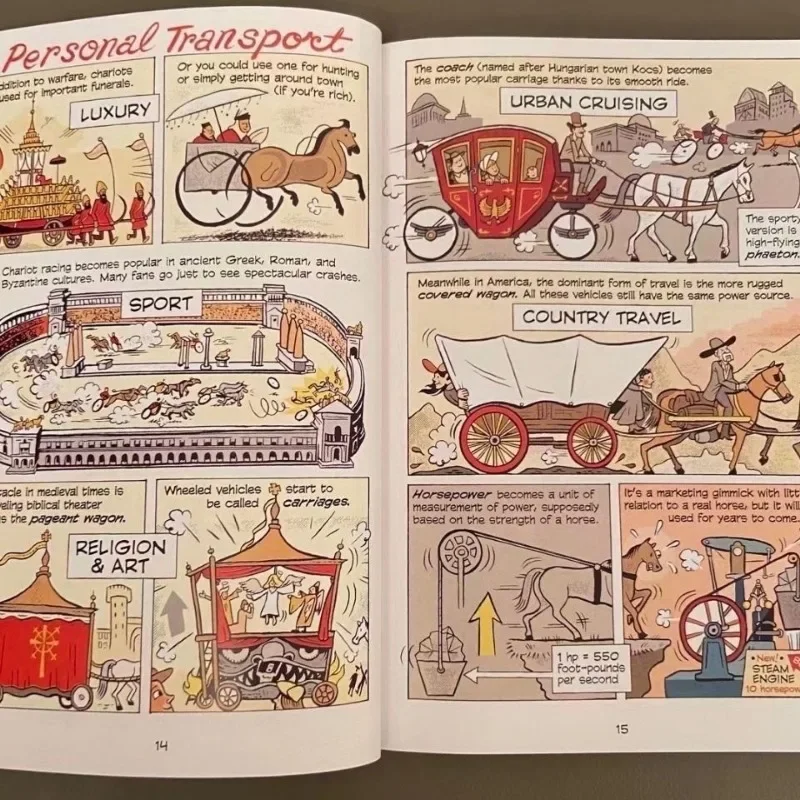 Personal Transport
ddition to warfare, chariots
used for important funerals.
LUXURY
Or you could use one for hunting
or simply getting around town
(if you're rich).
Chariot racing becomes popular in ancient Greek, Roman, and
Byzantine cultures. Many fans go just to see spectacular crashes.
SPORT
tacle in medieval times is
veling biblical theater
s the pageant wagon.
RELIGION
& ART
Wheeled vehicles start to
be called carriages.
14
The coach (named after Hungarian town Kocs) becomes
the most popular carriage thanks to its smooth ride.
URBAN CRUISING
The sporty
version is
high-flying
phaeton.
Meanwhile in America, the dominant form of travel is the more rugged
covered wagon. All these vehicles still have the same power source.
COUNTRY TRAVEL
Horsepower becomes a unit of
measurement of power, supposedly
based on the strength of a horse.
1 hp = 550
foot-pounds
per second
It's a marketing gimmick with litt
relation to a real horse, but it will
used for years to come.
New!
STEAM
ENGINE
10 horsepow
15